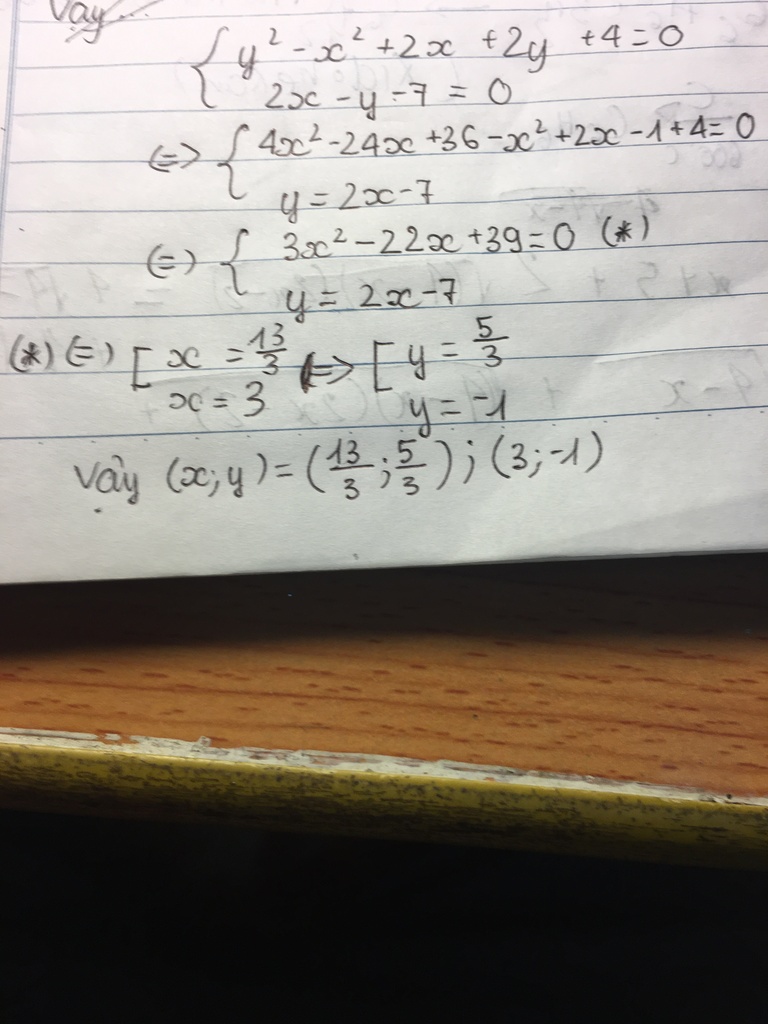 Vậy
{ y² - x² + 2x + 2y + 4 = 0
2x - y - 7 = 0
<=> { 4x² - 24x + 36 - x² + 2x - 1 + 4 = 0
y = 2x - 7
<=> { 3x² - 22x + 39 = 0 (*)
y = 2x - 7
(*) <=> [ x = 13/3 <=> [ y = 5/3
x = 3 y = -1
Vậy (x; y) = (13/3; 5/3); (3; -1)